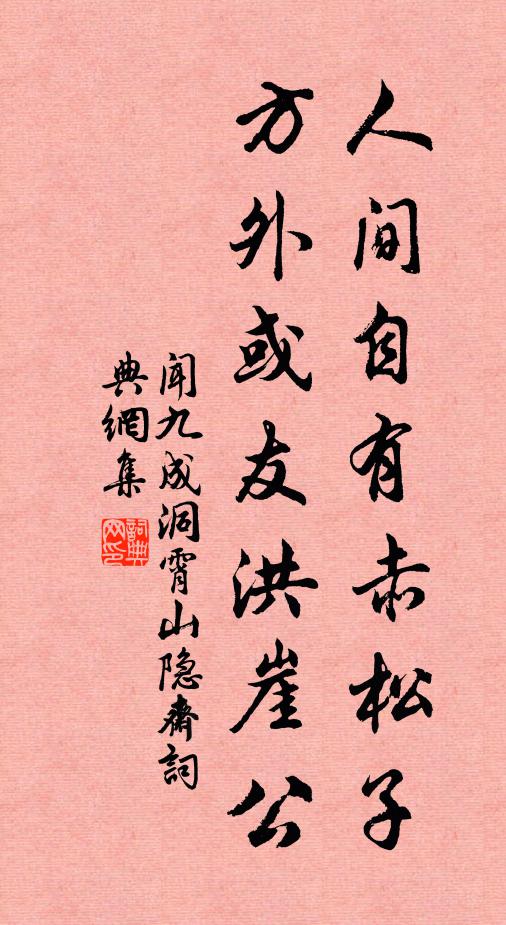 人间自有赤松子
方外或友洪崖公
闻九成洞霄山隐斋詞
典網集
詞典網印